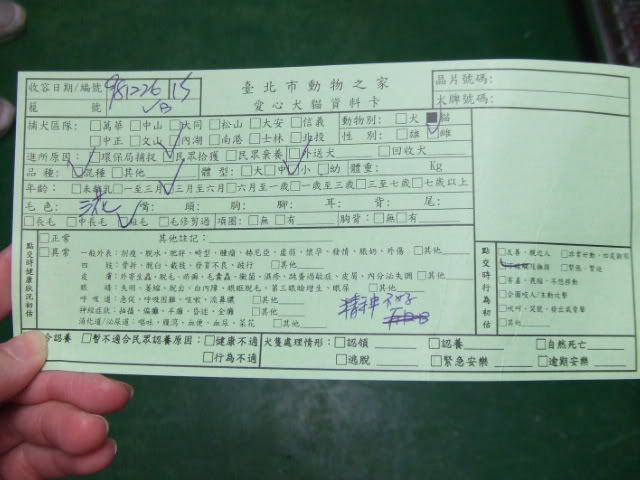 臺北市動物之家
愛心犬貓資料卡
收容日期/編號 981226 15
籠 號
晶片號碼:
犬牌號碼:
捕犬區隊: □萬華 □中山 □大同 □松山 □大安 □信義
□中正 □文山 □內湖 □南港 □士林 □北投
動物別: □犬 ■貓
性 別: □雄 □雌
進所原因: □環保局捕捉 □民眾拾獲 □民眾棄養 □外送犬 □回收犬
品 種: □混種 □其他 體 型: □大 □中 □小 □幼 體重: Kg
年齡: □未離乳 □一至三月 □三月至六月 □六月至一歲 □一歲至三歲 □三至七歲 □七歲以上
毛 色: 三花 嘴: 頭: 胸: 腳: 耳: 背: 尾:
□長毛 □中長毛 □短毛 □毛修剪過 項圈: □無 □有 胸背: □無 □有
點交時健康狀況初估
□正常 其他註記:
□異常 一般外表: 削瘦、脫水、肥胖、畸型、腫瘤、赫尼亞、虛弱、懷孕、發情、跟奶、外傷 □其他
四 肢: 骨折、脫臼、截肢、發育不良、跛行 □其他
□其他
眼 睛: 失明、萎縮、脫出、白內障、眼瞼脫毛、第三眼瞼增生、眼屎 □其他
呼 吸 道: 急促、呼吸困難、咳嗽、流鼻膿 □其他
神經症狀: 抽搐、偏癱、半癱、昏迷、全癱 □其他
消化道/泌尿道: 嘔吐、腹瀉、血便、血尿、菜花 □其他
精神不好
點交時行為初估
□友善、親近人
□緊張、緊迫
□害羞、畏縮、不想移動
□企圖咬人/主動攻擊
□其他
□暫不適合民眾認養原因: □健康不適
□行為不適
犬隻處理情形: □認領 □認養 □自然死亡
□逃脫 □緊急安樂 □逾期安樂